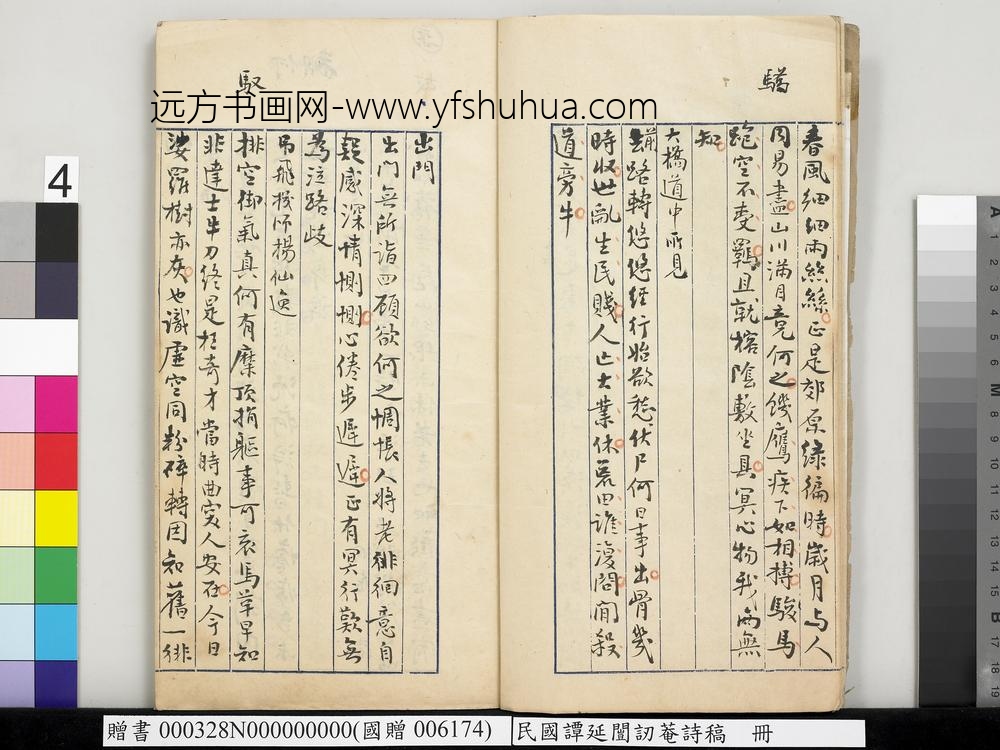 驕
春風細細雨絲絲正是郊原綠徧時歲月與人
同易盡山川滿目竟何之饑鷹疾下如相搏駿馬
跑空不受羈且就榕陰敷坐具冥心物我兩無
知
大橋道中所見
蹦路轉悠悠經行始欲愁伏尸何日事出骨幾
時收世亂生民賤人亡大業休荒田誰復問閒殺
道旁牛
馭
出門
出門無所詣四顧欲何之惆悵人將老徘徊意自
疑感深情惻惻心倦步遲遲正有冥行歎無
為泣路歧
弔飛機師楊仙逸
排空御氣真何有糜頂捐軀事可哀馬革早知
非達士牛刀終是枉奇才當時曲突人安在今日
娑羅樹亦灰也識虛空同粉碎轉因知舊一徘
远方书画网-www.yfshuhua.com
4
贈書 000328N000000000(國贈 006174)
民國譚延闓訒菴詩稿 冊